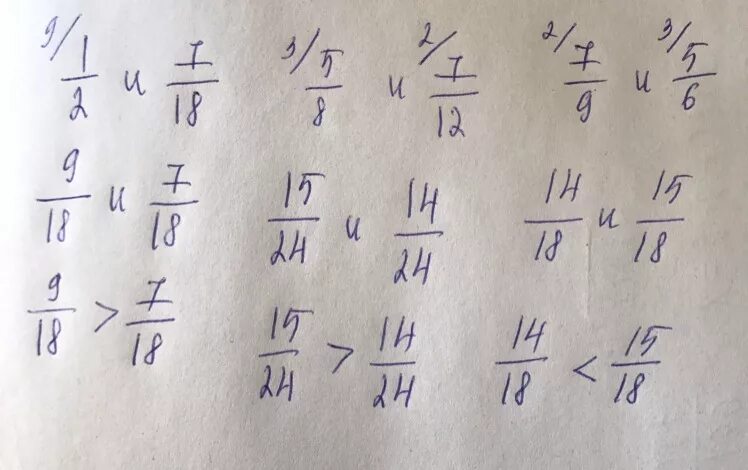 9/ 1/2 и 7/18   3/ 5/8 и 2/ 7/12   2/ 7/9 и 3/ 5/6
9/18 и 7/18   15/24 и 14/24   14/18 и 15/18
9/18 > 7/18   15/24 > 14/24   14/18 < 15/18